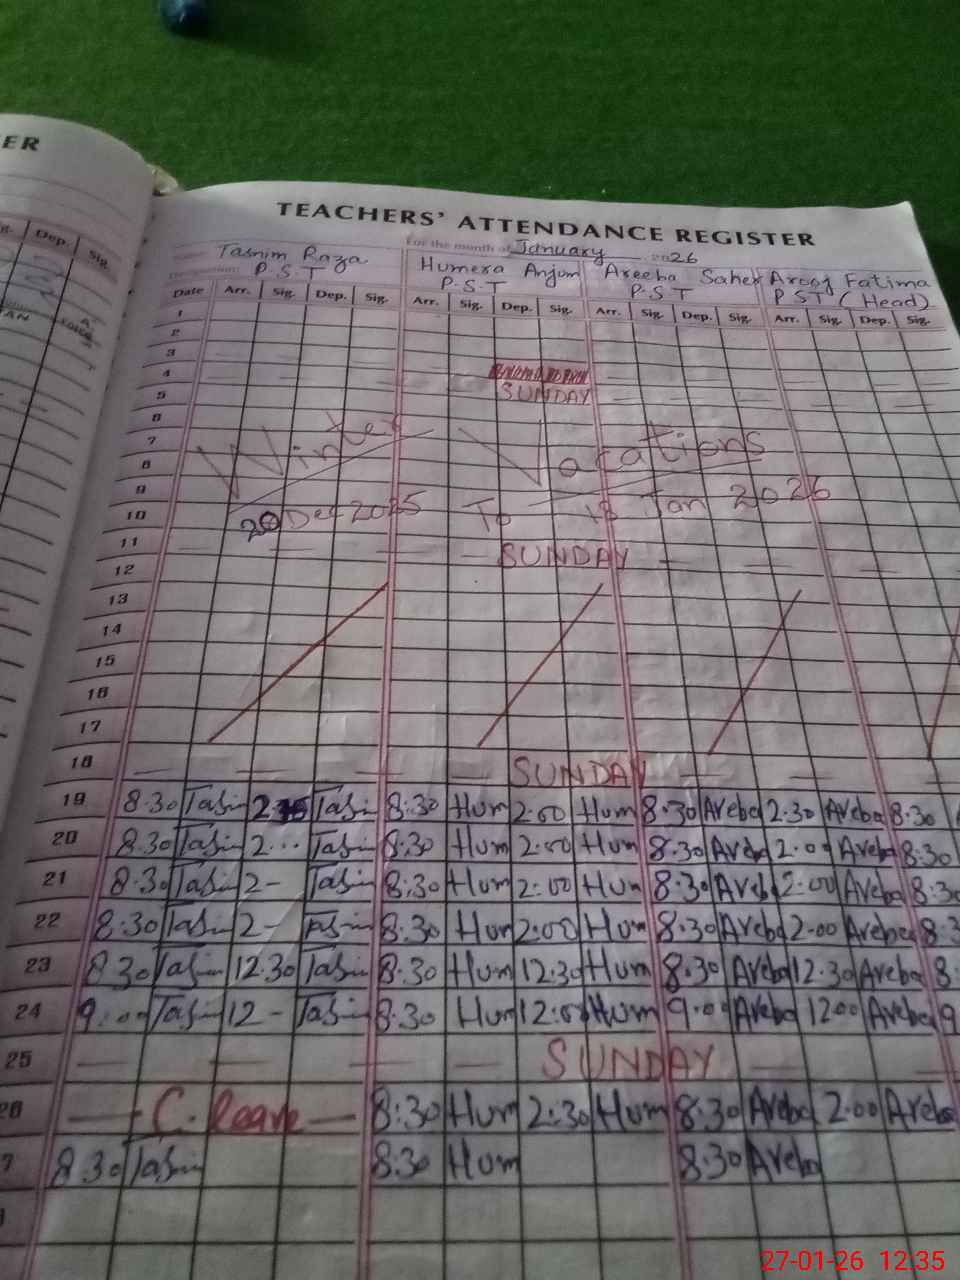 ER
Dep.
Sig.
TEACHERS' ATTENDANCE REGISTER
For the month of January 2026
Tasnim Raza
Designation: P.S.T
Humera Anjum Areeba Saher Arooj Fatima
P.S.T P.S.T PST (Head)
Date Arr. Sig. Dep. Sig. Arr. Sig. Dep. Sig. Arr. Sig. Dep. Sig. Arr. Sig. Dep. Sig.
1
2
3
4
5 SUNDAY
6
7
8 Winter Vacations
9
10 20 Dec 2025 To 18 Jan 2026
11 SUNDAY
12
13
14
15
16
17
18 SUNDAY
19 8:30 Tasnim Tasnim 8:30 Hum 2:00 Hum 8:30 Areba 2:30 Areba 8:30
20 8:30 Tasnim 2... Tasnim 8:30 Hum 2:00 Hum 8:30 Areba 2:00 Areba 8:30
21 8:30 Tasnim 2- Tasnim 8:30 Hum 2:00 Hum 8:30 Areba 2:00 Areba 8:30
22 8:30 Tasnim 2- Tasnim 8:30 Hum 2:00 Hum 8:30 Areba 2:00 Areba 8:3
23 8:30 Tasnim 12:30 Tasnim 8:30 Hum 12:30 Hum 8:30 Areba 12:30 Areba 8:
24 9:00 Tasnim 12- Tasnim 8:30 Hum 12:00 Hum 9:00 Areba 1200 Areba 9
25 SUNDAY
26 C. leave 8:30 Hum 2:30 Hum 8:30 Areba 2:00 Areba
7 8:30 Tasnim 8:30 Hum 8:30 Areba
27-01-26 12:35